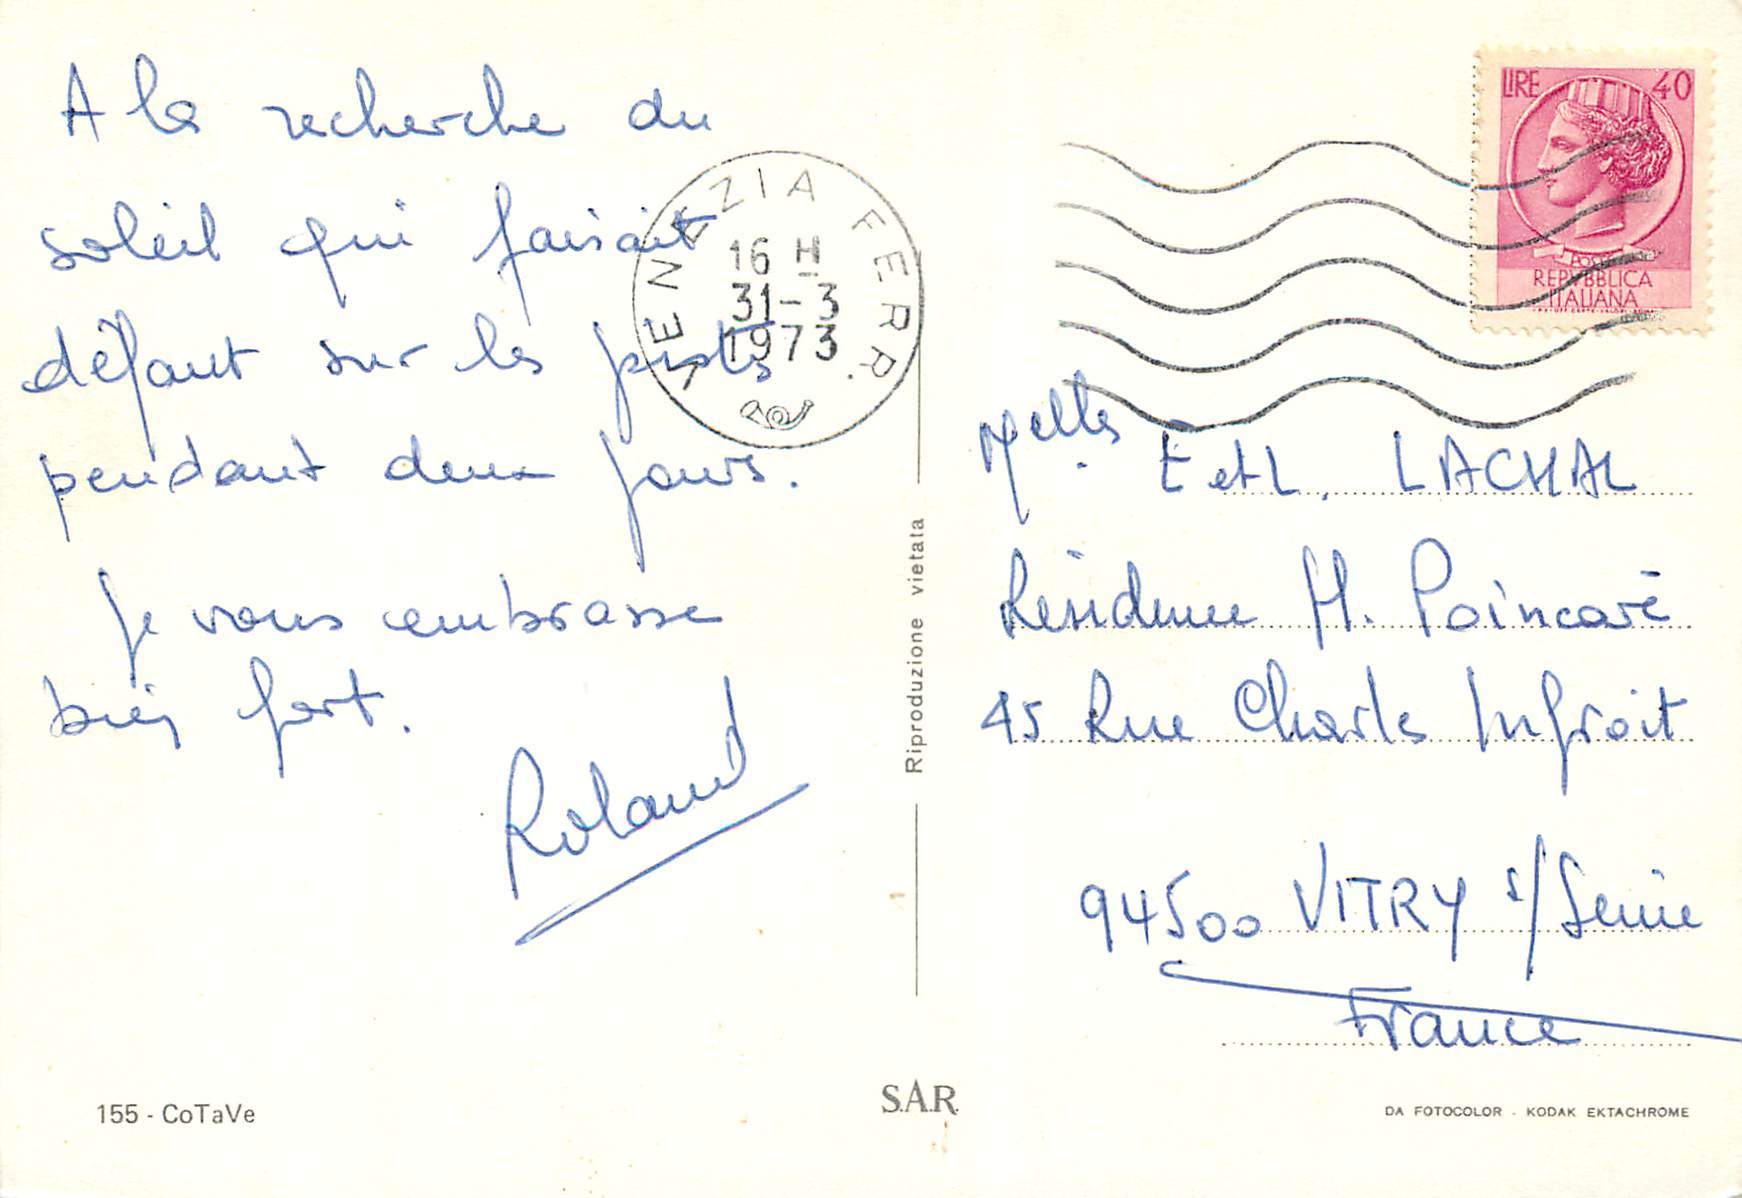 A la recherche du
soleil qui faisait
défaut sur les pistes
pendant deux jours.
Je vous embrasse
bien fort.
Roland
VENEZIA FERR.
16 H
31-3
1973
LIRE 40
POSTE
REPVBBLICA
ITALIANA
Melles E et L. LACHAL
Résidence H. Poincaré
45 Rue Charles Infroit
94500 VITRY s/Seine
France
Riproduzione vietata
155 - CoTaVe
S.A.R.
DA FOTOCOLOR - KODAK EKTACHROME